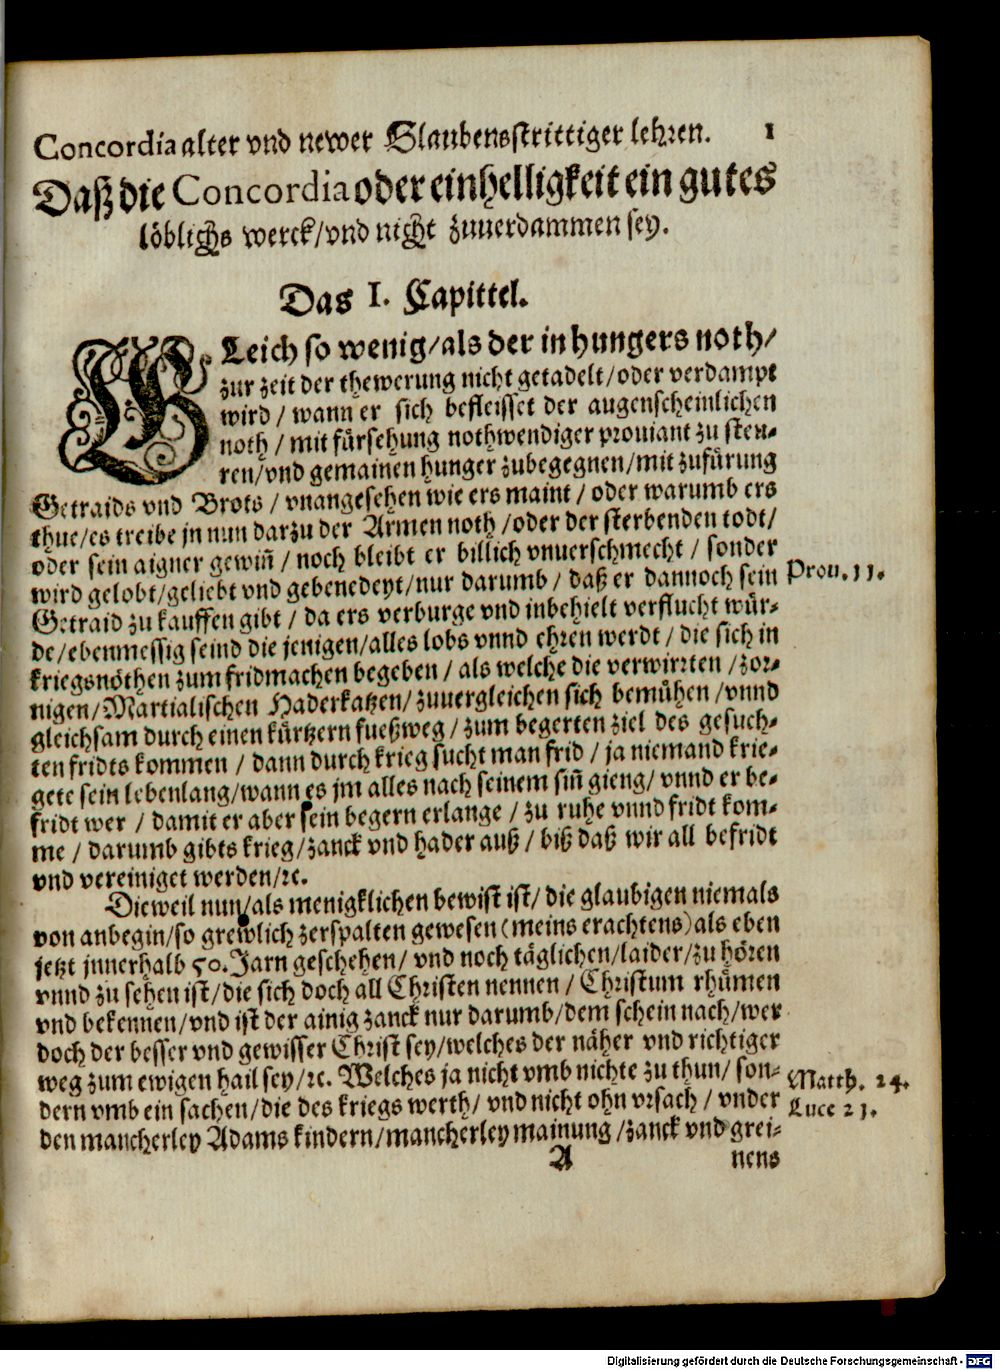 Concordia alter vnd newer Glaubensstrittiger lehren. 1
Daß die Concordia oder einhelligkeit ein gutes
löblichs werck/vnd nicht zuuerdammen sey.
Das I. Capittel.
GLeich so wenig/als der in hungers noth/
zur zeit der thewerung nicht getadelt/oder verdampt
wird/wann er sich befleisset der augenscheinlichen
noth/mit fürsehung nothwendiger prouiant zu steu-
ren/vnd gemainen hunger zubegegnen/mit zufürung
Getraids vnd Brots/vnangesehen wie ers maint/oder warumb ers
thue/es treibe jn nun darzu der Armen noth/oder der sterbenden todt/
oder sein aigner gewiñ/noch bleibt er billich vnuerschmecht/sonder
wird gelobt/geliebt vnd gebenedeyt/nur darumb/daß er dannoch sein
Prou. 11.
Getraid zu kauffen gibt/da ers verburge vnd inbehielt verflucht wür-
de/ebenmessig seind die jenigen/alles lobs vnnd ehren werdt/die sich in
kriegsnöthen zum fridmachen begeben/als welche die verwirrten/zor-
nigen/Martialischen Haderkatzen/zuuergleichen sich bemühen/vnnd
gleichsam durch einen kürtzern fueßweg/zum begerten ziel des gesuch-
ten fridts kommen/dann durch krieg sucht man frid/ja niemand krie-
gete sein lebenlang/wann es jm alles nach seinem siñ gieng/vnnd er be-
fridt wer/damit er aber sein begern erlange/zu ruhe vnnd fridt kom-
me/darumb gibts krieg/zanck vnd hader auß/biß daß wir all befridt
vnd vereiniget werden/ꝛc.
Dieweil nun/als menigklichen bewist ist/die glaubigen niemals
von anbegin/so grewlich zerspalten gewesen (meins erachtens) als eben
jetzt jnnerhalb 50. Jarn geschehen/vnd noch täglichen/laider/zu hören
vnnd zu sehen ist/die sich doch all Christen nennen/Christum rhümen
vnd bekennen/vnd ist der ainig zanck nur darumb/dem schein nach/wer
doch der besser vnd gewisser Christ sey/welches der näher vnd richtiger
weg zum ewigen hail sey/ꝛc. Welches ja nicht vmb nichte zu thun/son-
Matth. 24.
dern vmb ein sachen/die des kriegs werth/vnd nicht ohn vrsach/vnder
Luce 21.
den mancherley Adams kindern/mancherley mainung/zanck vnd grei-
A nens
Digitalisierung gefördert durch die Deutsche Forschungsgemeinschaft - DFG